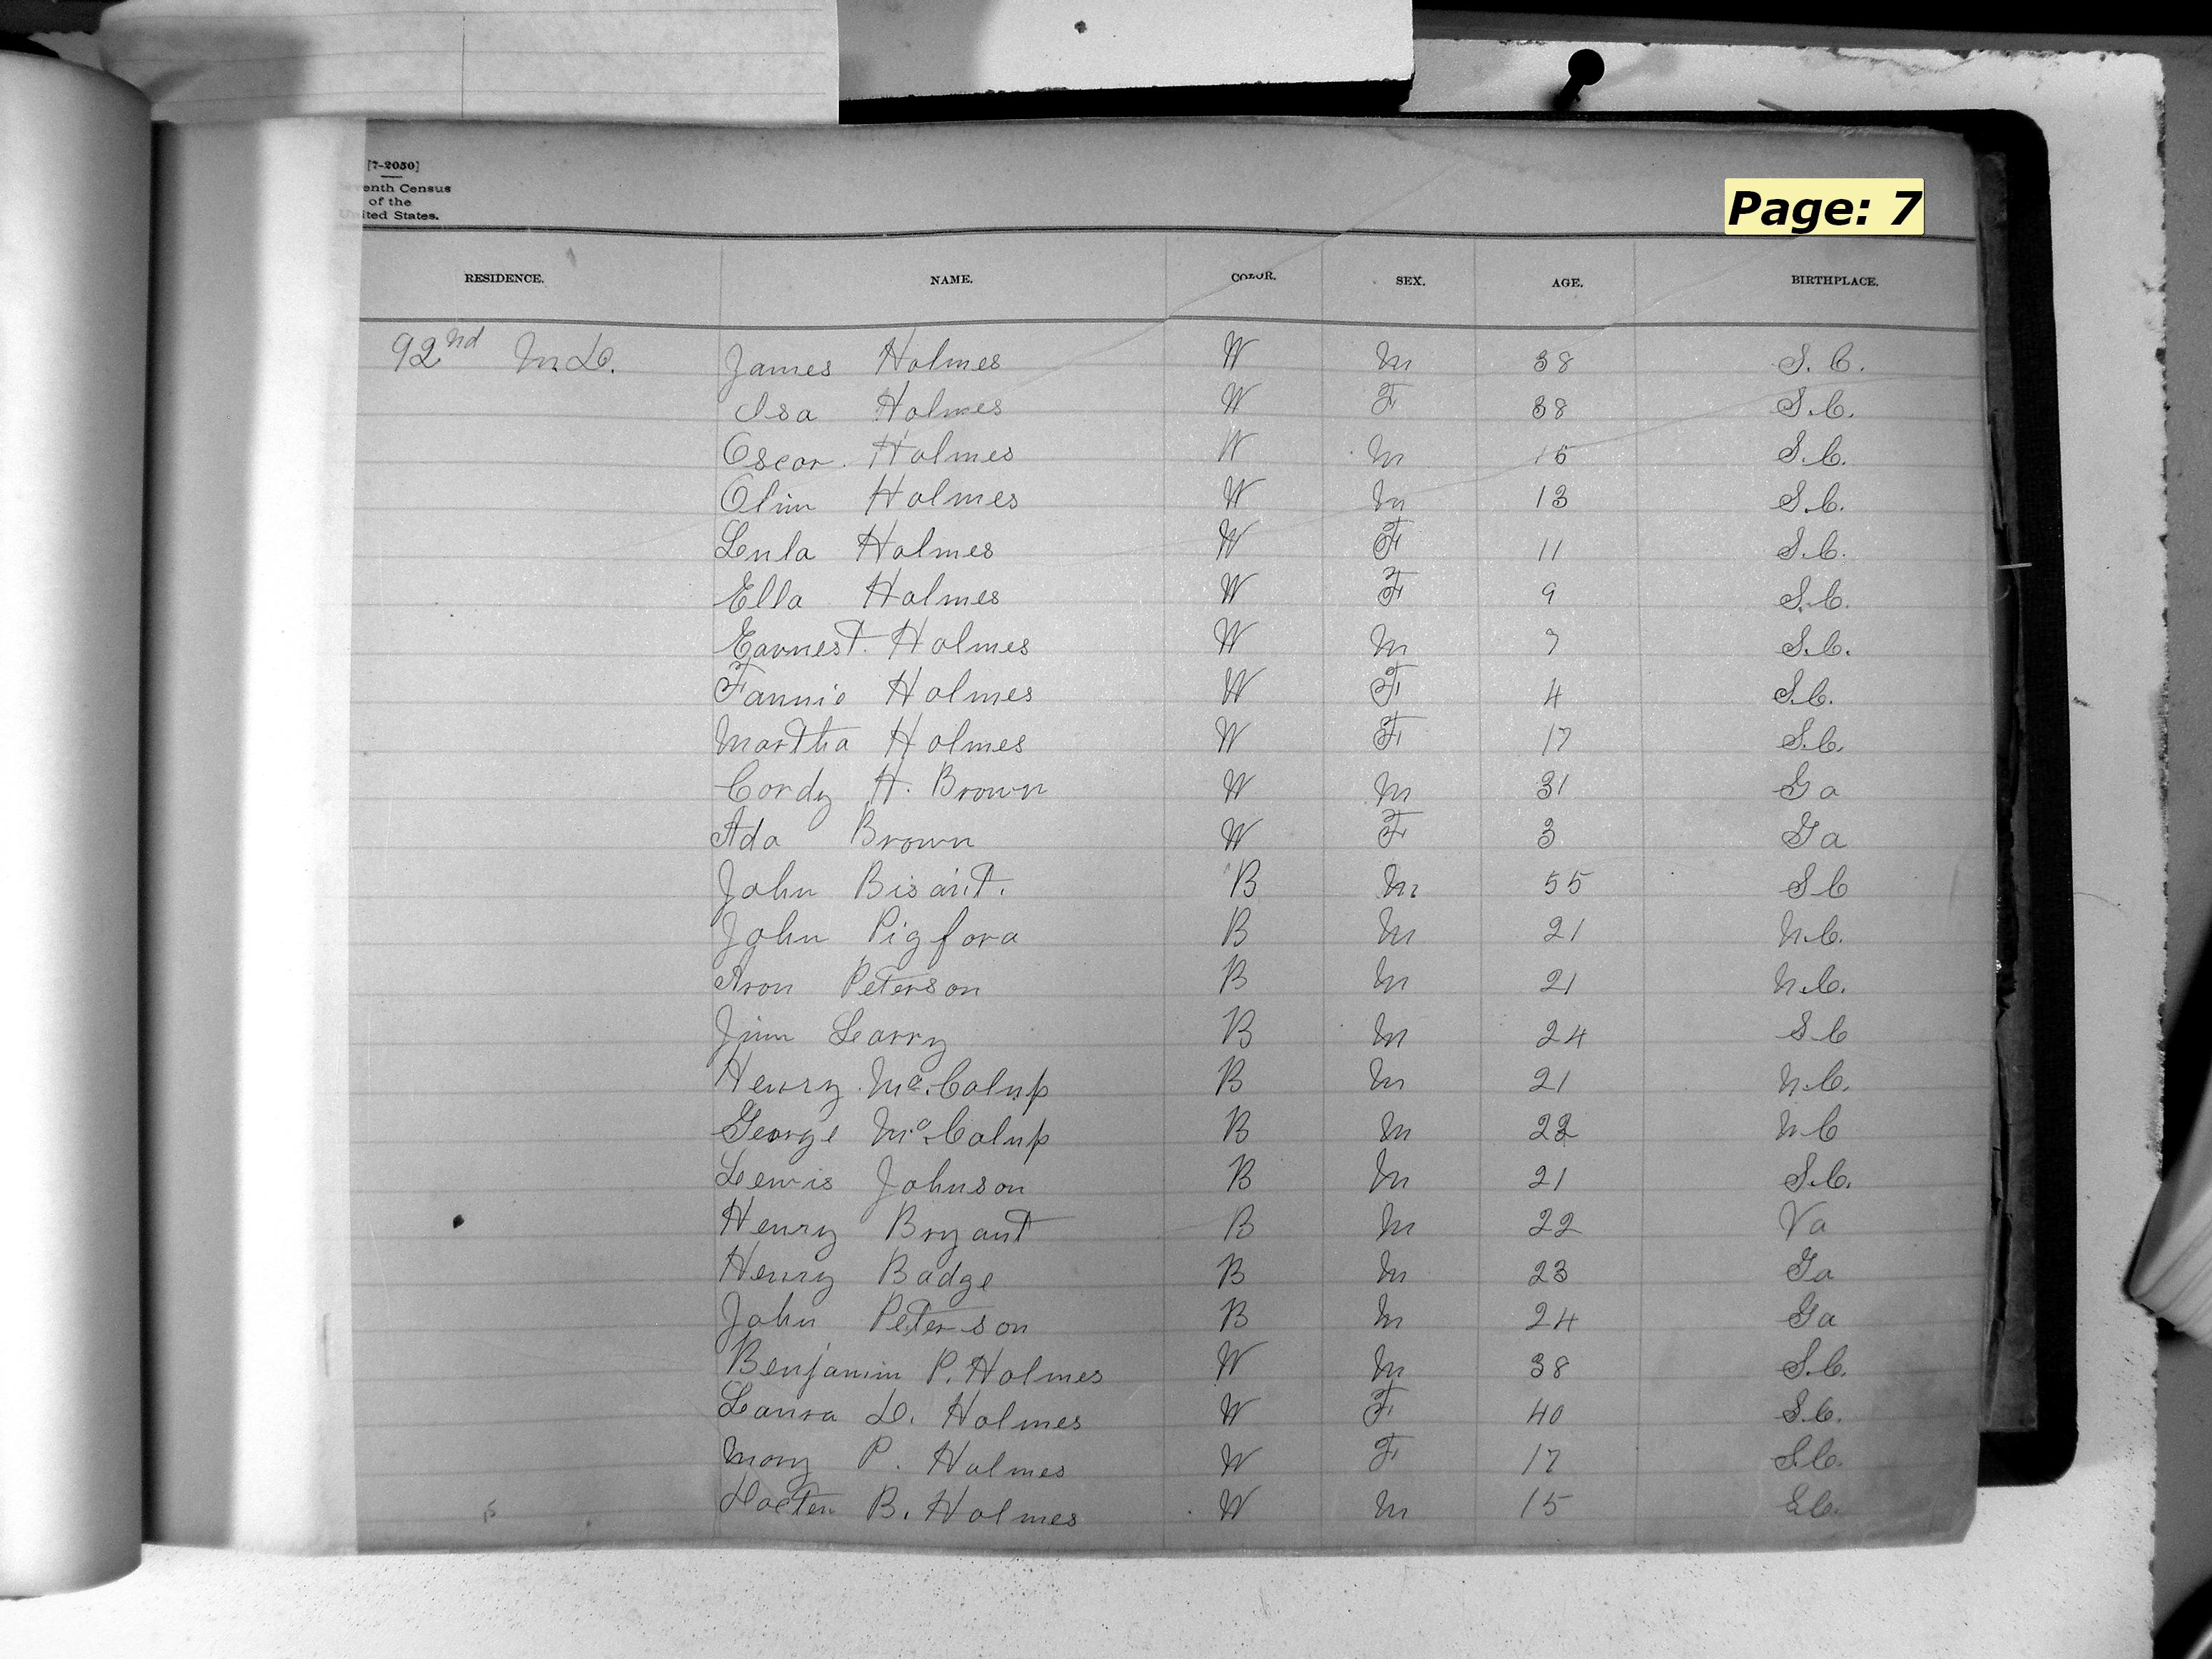 [7-2050]
enth Census
of the
United States.
Page: 7
RESIDENCE. NAME. COLOR. SEX. AGE. BIRTHPLACE.
92nd M.D. James Holmes W M 38 S.C.
Isa Holmes W F 38 S.C.
Oscar Holmes W M 15 S.C.
Olin Holmes W M 13 S.C.
Lula Holmes W F 11 S.C.
Ella Holmes W F 9 S.C.
Earnest Holmes W M 7 S.C.
Fannie Holmes W F 4 S.C.
Martha Holmes W F 17 S.C.
Cordy H. Brown W M 31 Ga
Ada Brown W F 3 Ga
John Bisant. B M 55 S C
John Pigford B M 21 N.C.
Aron Peterson B M 21 N.C.
Jim Learry B M 24 S C
Henry Mc.Calup B M 21 N.C.
George Mc.Calup B M 22 N C
Lewis Johnson B M 21 S.C.
Henry Bryant B M 22 Va
Henry Badge B M 23 Ga
John Peterson B M 24 Ga
Benjamin P. Holmes W M 38 S.C.
Laura D. Holmes W F 40 S.C.
Mary P. Holmes W F 17 S.C.
B. Holmes W M 15 S.C.